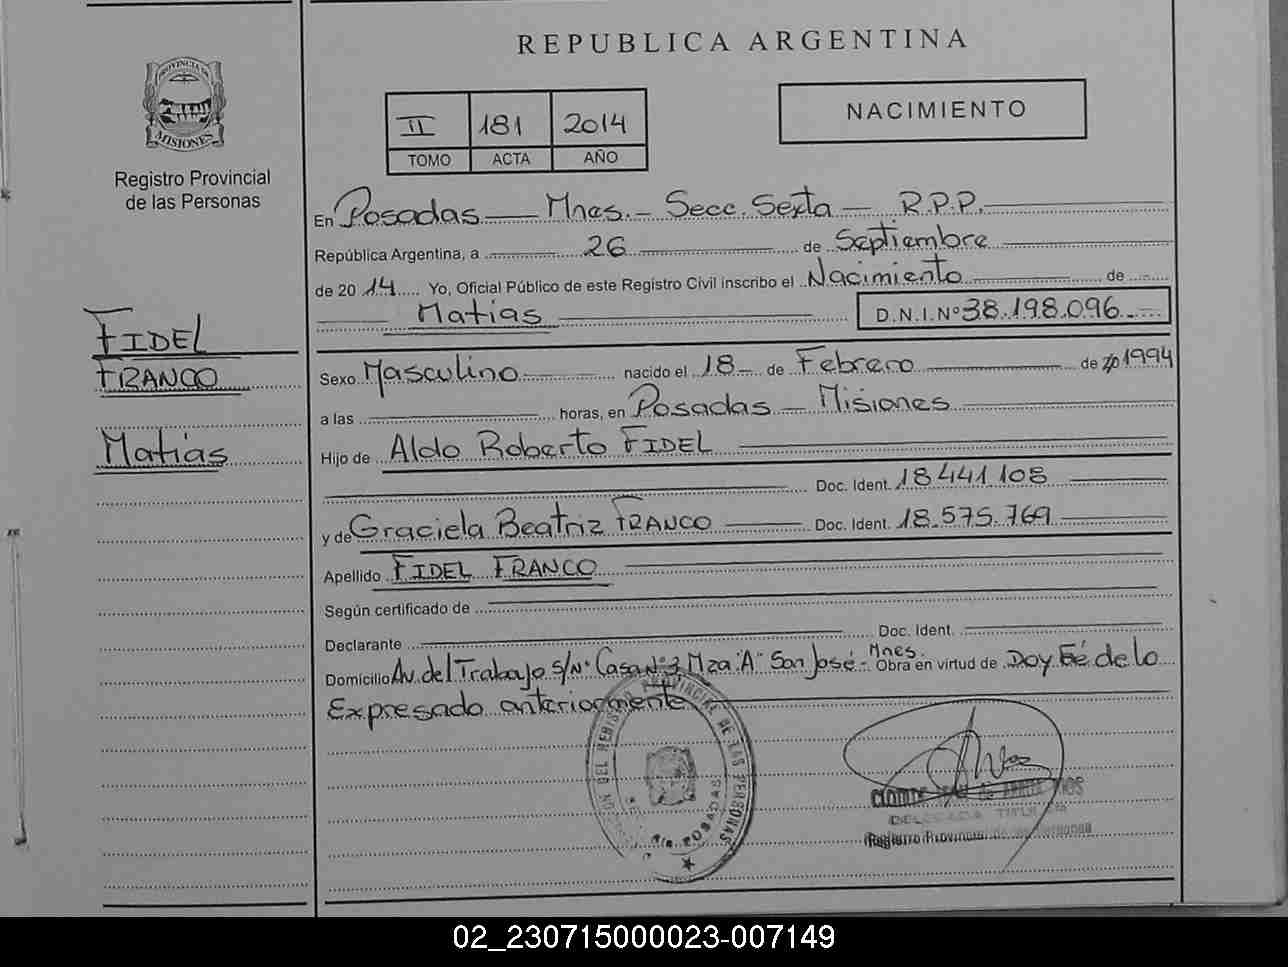 REPUBLICA ARGENTINA
PROVINCIA DE
MISIONES
Registro Provincial
de las Personas
II 181 2014
TOMO ACTA AÑO
NACIMIENTO
En Posadas - Mnes. - Secc. Sexta - R.P.P.
República Argentina, a 26 de Septiembre
de 2014 Yo, Oficial Público de este Registro Civil inscribo el Nacimiento de
Matías D.N.I.Nº 38.198.096.-
FIDEL
FRANCO
Matías
Sexo Masculino nacido el 18 - de Febrero de 1994
a las horas, en Posadas - Misiones
Hijo de Aldo Roberto FIDEL
Doc. Ident. 18441108
y de Graciela Beatriz FRANCO Doc. Ident. 18.575.769
Apellido FIDEL FRANCO
Según certificado de
Declarante Doc. Ident.
Domicilio Av. del Trabajo S/Nº Casa Nº 3, Mza "A" San José - Mnes. Obra en virtud de Doy Fé de lo
Expresado anteriormente
DEL REGISTRO PROVINCIAL DE LAS PERSONAS
POSADAS
DELEGADA TITULAR
Registro Provincial de las Personas
02_230715000023-007149